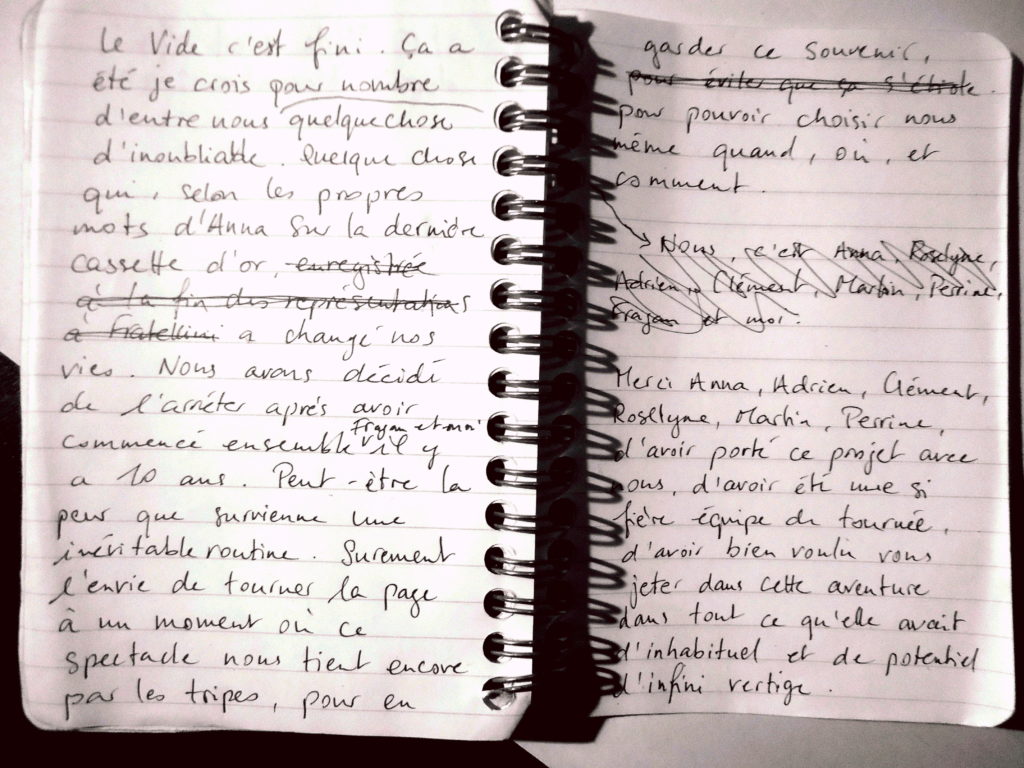 Le Vide c'est fini. Ça a
été je crois pour nombre
d'entre nous quelquechose
d'inoubliable. Quelque chose
qui, selon les propres
mots d'Anna sur la dernière
cassette d'or, enregistrée
à la fin des représentations
à Fratellini a changé nos
vies. Nous avons décidé
de l'arrêter après avoir
Fragan et moi
commencé ensemble il y
a 10 ans. Peut-être la
peur que survienne une
inévitable routine. Surement
l'envie de tourner la page
à un moment où ce
spectacle nous tient encore
par les tripes, pour en
garder ce souvenir,
pour éviter que ça s'étiole.
pour pouvoir choisir nous
même quand, où, et
comment.
Nous, c'est Anna, Roselyne,
Adrien, Clément, Martin, Perrine,
Fragan et moi.
Merci Anna, Adrien, Clément,
Roselyne, Martin, Perrine,
d'avoir porté ce projet avec
nous, d'avoir été une si
fière équipe de tournée,
d'avoir bien voulu vous
jeter dans cette aventure
dans tout ce qu'elle avait
d'inhabituel et de potentiel
d'infini vertige.